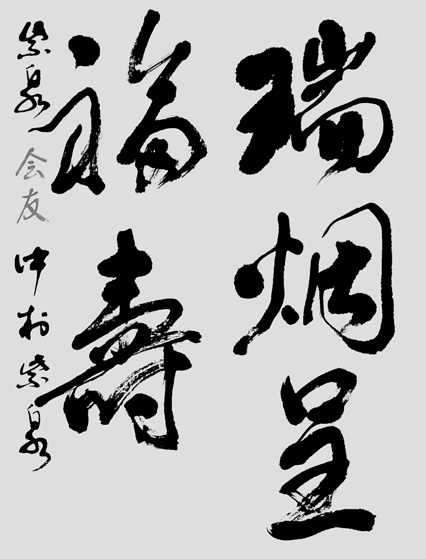 瑞烟呈
福壽
紫泉会友中村紫泉